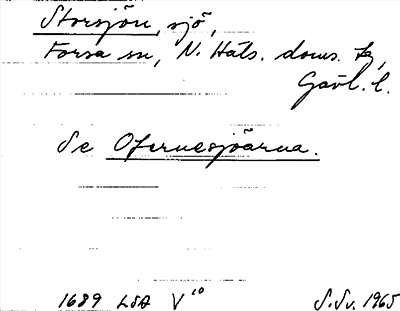 Storsjön, sjö,
Forsa sn, N. Häls. doms. tg,
Gävl. l.
Se Ofernesjöarna.
1689 LSA V¹⁰ S.Sv. 1965